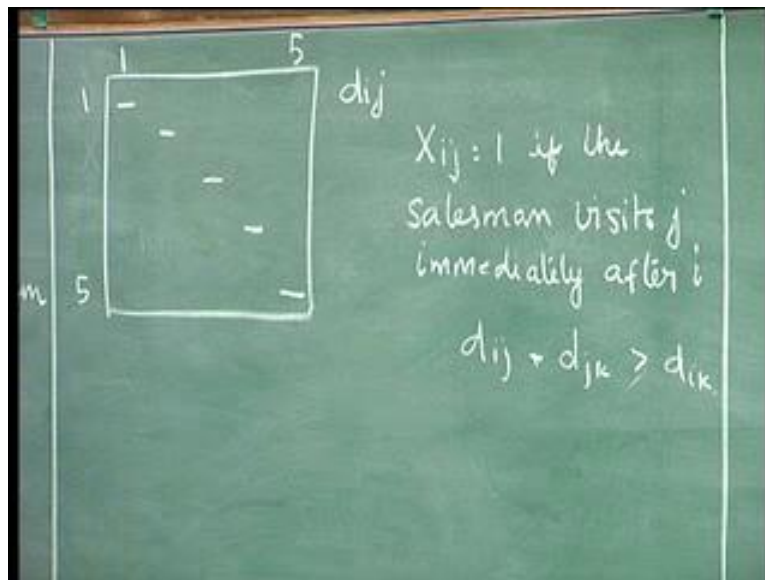 1 5
1 – dij
–
–
–
m 5 –
Xij : 1 if the
salesman visits j
immediately after i
dij + djk ≥ dik